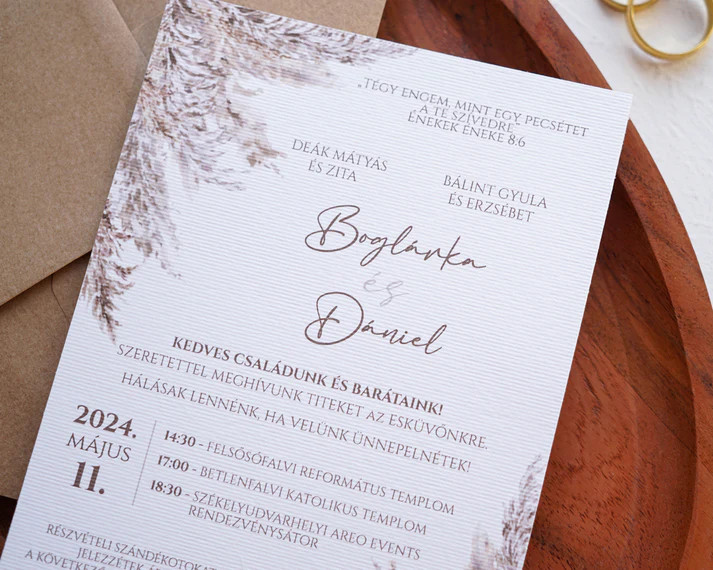 „TÉGY ENGEM, MINT EGY PECSÉTET
A TE SZÍVEDRE”
ÉNEKEK ÉNEKE 8:6
DEÁK MÁTYÁS
ÉS ZITA
BÁLINT GYULA
ÉS ERZSÉBET
Boglárka
és
Dániel
KEDVES CSALÁDUNK ÉS BARÁTAINK!
SZERETETTEL MEGHÍVUNK TITEKET AZ ESKÜVŐNKRE.
HÁLÁSAK LENNÉNK, HA VELÜNK ÜNNEPELNÉTEK!
2024.
MÁJUS
11.
14:30 - FELSŐSÓFALVI REFORMÁTUS TEMPLOM
17:00 - BETLENFALVI KATOLIKUS TEMPLOM
18:30 - SZÉKELYUDVARHELYI AREO EVENTS
RENDEZVÉNYSÁTOR
RÉSZVÉTELI SZÁNDÉKOTOKA
JELEZZÉTEK
A KÖVETKEZŐ